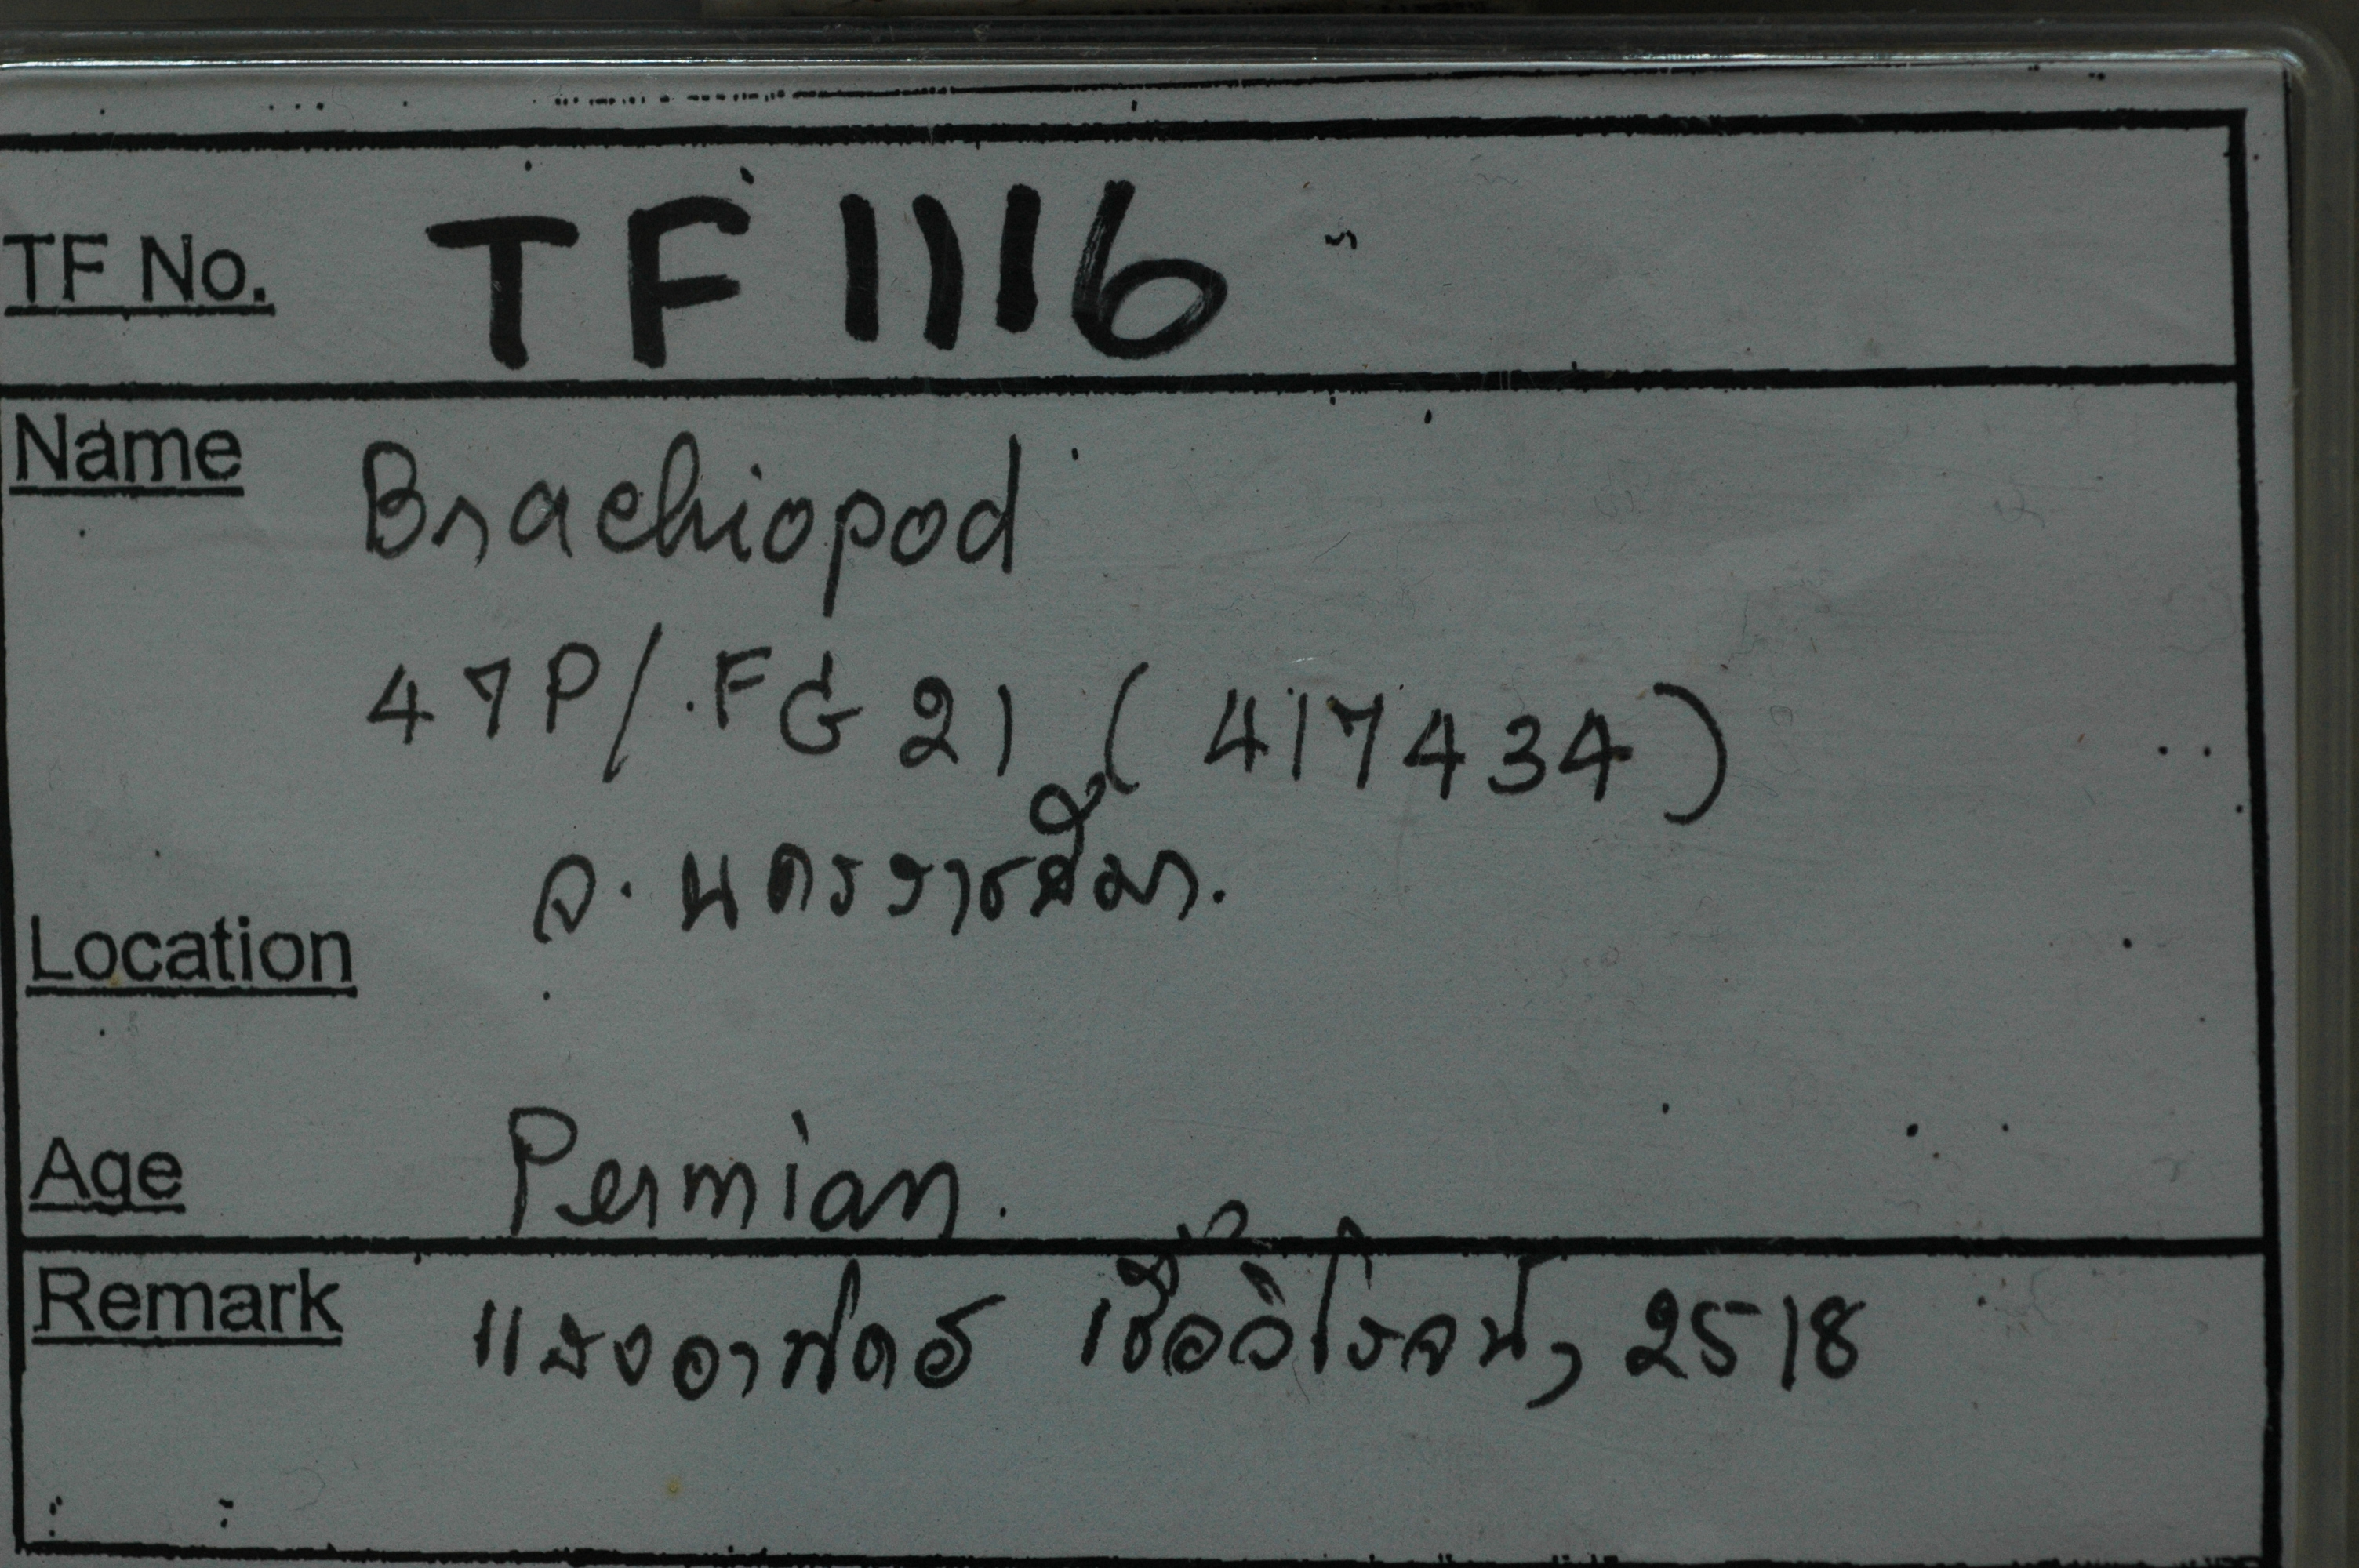 TF No. TF 1116
Name Brachiopod
47P/.FG 21 (417434)
จ. นครราชสีมา.
Location
Age Permian.
Remark แสงอาทิตย์ เชื้อวิโรจน์, 2518